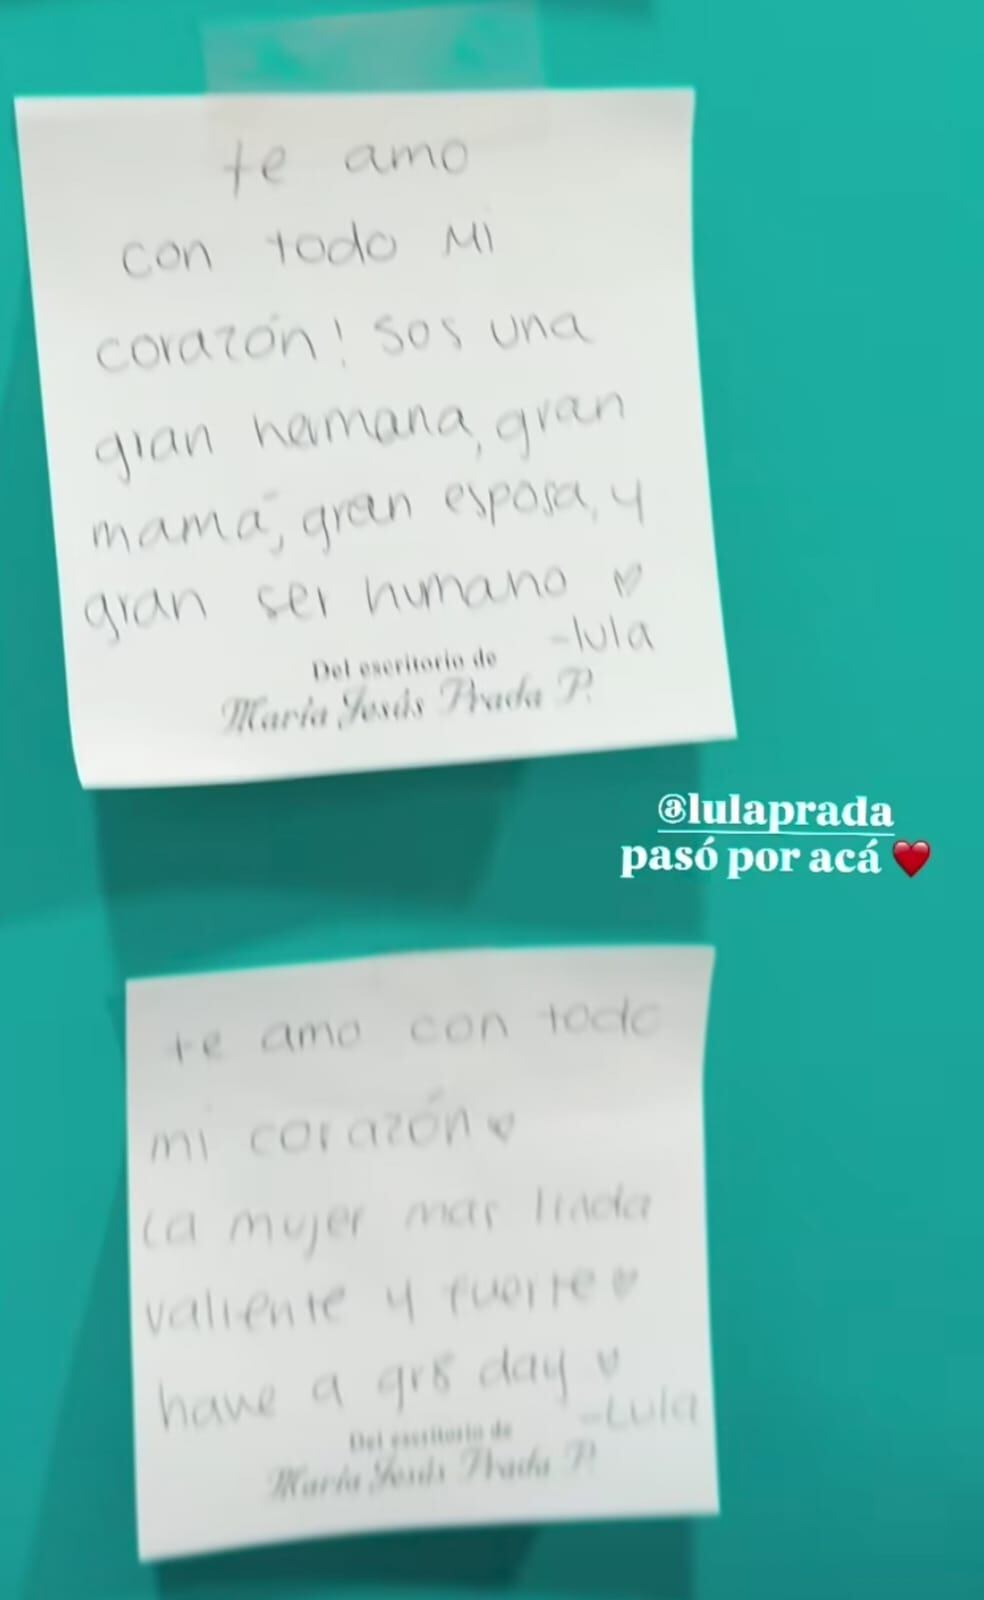 te amo
con todo mi
corazón! sos una
gran hermana, gran
mamá, gran esposa, y
gran ser humano ♡
-lula
Del escritorio de
María Jesús Prada P.
@lulaprada
pasó por acá ❤️
te amo con todo
mi corazón ♡
La mujer mas linda
valiente y fuerte ♡
have a gr8 day ♡
-Lula
Del escritorio de
María Jesús Prada P.